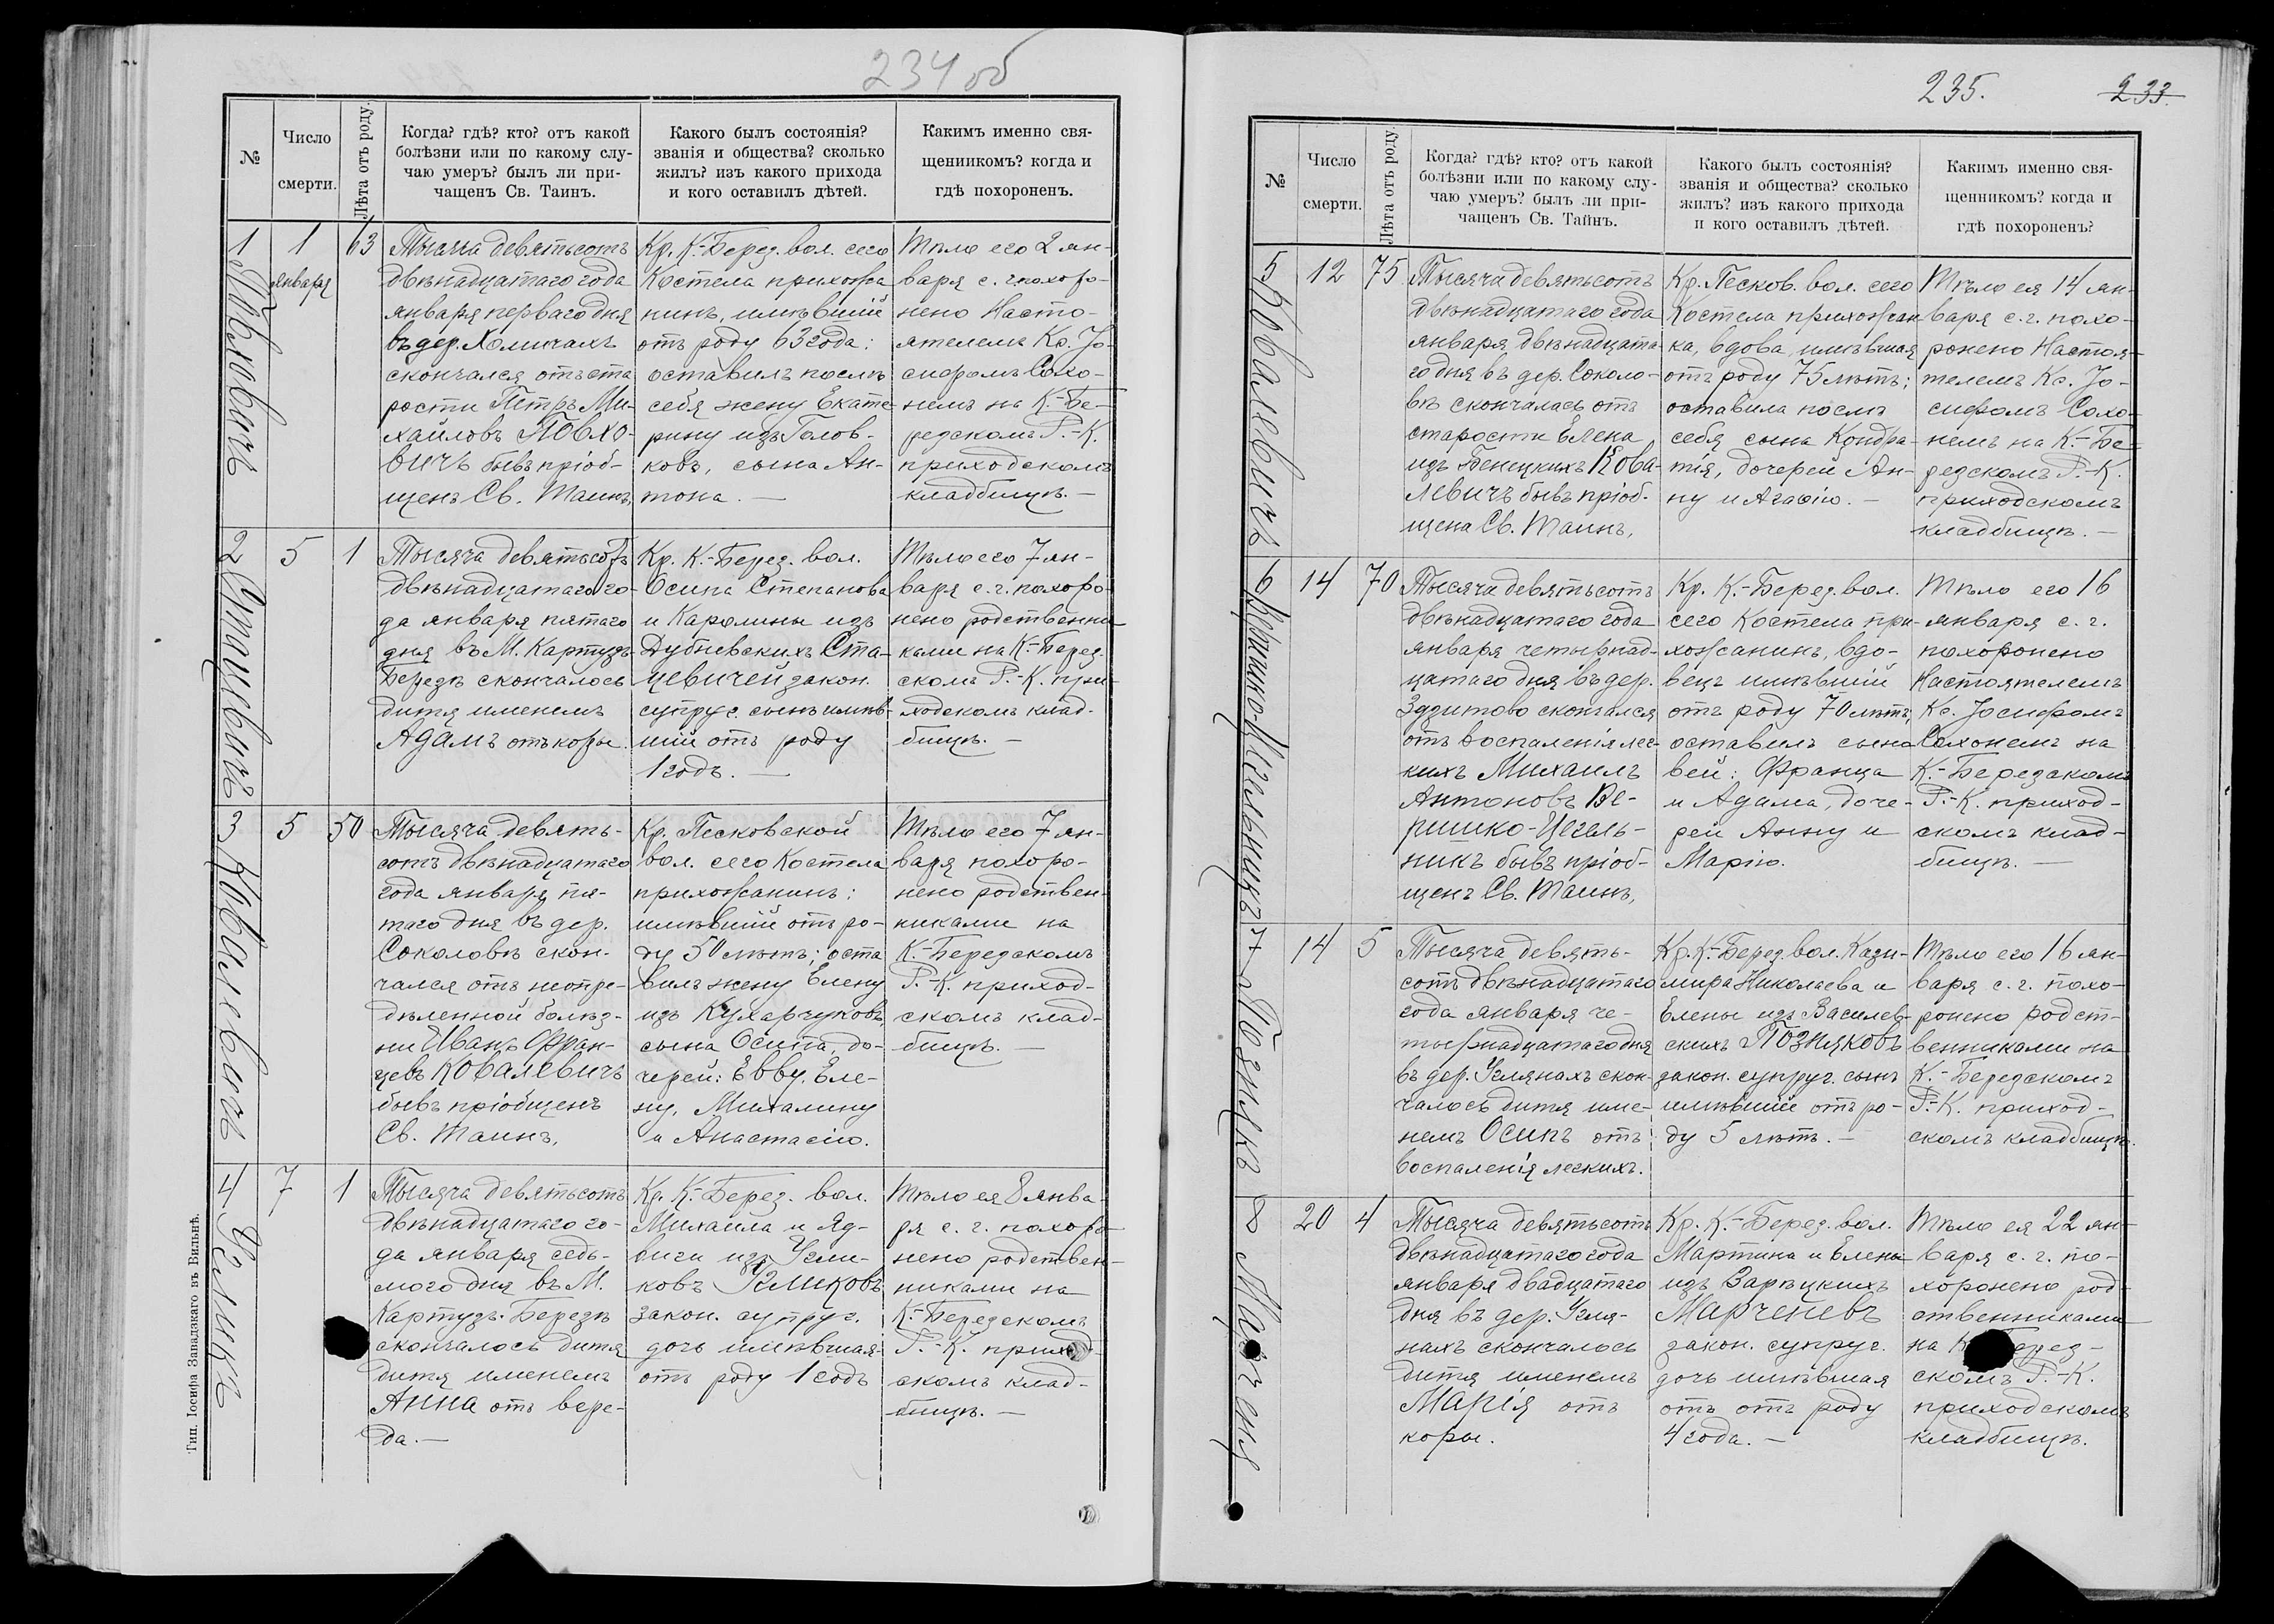 234 об
№
Число
смерти.
Лѣта отъ роду.
Когда? гдѣ? кто? отъ какой
болѣзни или по какому слу-
чаю умеръ? былъ ли при-
чащенъ Св. Таинъ.
Какого былъ состоянія?
званія и общества? сколько
жилъ? изъ какого прихода
и кого оставилъ дѣтей.
Какимъ именно свя-
щенникомъ? когда и
гдѣ похороненъ.
1
Повховичъ
1
января
63
Тысяча девятьсотъ
двѣнадцатаго года
января перваго дня
въ дер. Хомичахъ
скончался отъ ста
рости Петръ Ми-
хайловъ Повхо-
вичъ бывъ пріоб-
щенъ Св. Таинъ,
Кр. К.-Берез. вол. сего
Костела прихожа
нинъ, имѣвшій
отъ роду 63 года:
оставилъ послѣ
себя жену Екате
рину изъ Голов-
ковъ, сына Ан-
тона. —
Тѣло его 2 ян-
варя с. г. похоро-
нено Насто-
ятелемъ Кс. Іо-
сифомъ Сохо-
немъ на К.-Бе-
резскомъ Р.-К.
приходскомъ
кладбищѣ. —
2
Стацевичъ
5
1
Тысяча девятьсотъ
двѣнадцатаго го-
да января пятаго
дня въ М. Картузъ-
Березѣ скончалось
дитя именемъ
Адамъ отъ коры.
Кр. К.-Берез. вол.
Осипа Степанова
и Каролины изъ
Дубневскихъ Ста-
цевичей закон.
супруг. сынъ имѣв-
шій отъ роду
1 годъ. —
Тѣло его 7 ян-
варя с. г. похоро-
нено родственни
ками на К.-Берез-
скомъ Р.-К. при-
ходскомъ клад-
бищѣ. —
3
Ковалевичъ
5
50
Тысяча девять-
сотъ двѣнадцатаго
года января пя-
таго дня въ дер.
Соколовѣ скон-
чался отъ неопре-
дѣленной болѣз-
ни Иванъ Фран-
цевъ Ковалевичъ
бывъ пріобщенъ
Св. Таинъ,
Кр. Песковской
вол. сего Костела
прихожанинъ:
имѣвшій отъ ро-
ду 50 лѣтъ; оста
вилъ жену Елену
изъ Кухарчуковъ,
сына Осипа, до-
черей: Евву, Еле-
ну, Михалину
и Анастасію.
Тѣло его 7 ян-
варя похоро-
нено родствен-
никами на
К.-Березскомъ
Р.-К. приход-
скомъ клад-
бищѣ. —
4
Угликъ
7
1
Тысяча девятьсотъ
двѣнадцатаго го-
да января седь-
мого дня въ М.
Картузъ-Березѣ
скончалось дитя
дитя именемъ
Анна отъ вере-
да. —
Кр. К.-Берез. вол.
Михаила и Яд-
виги изъ Угли-
ковъ Угликовъ
закон. супруг.
дочь имѣвшая
отъ роду 1 годъ
Тѣло ея 8 янва-
ря с. г. похоро-
нено родствен-
никами на
К.-Березскомъ
Р.-К. приход-
скомъ клад-
бищѣ. —
Тип. Іосифа Завадзкаго въ Вильнѣ.
235.
233.
№
Число
смерти.
Лѣта отъ роду
Когда? гдѣ? кто? отъ какой
болѣзни или по какому слу-
чаю умеръ? былъ ли при-
чащенъ Св. Тайнъ.
Какого былъ состоянія?
званія и общества? сколько
жилъ? изъ какого прихода
и кого оставилъ дѣтей.
Какимъ именно свя-
щенникомъ? когда и
гдѣ похороненъ?
5
Ковалевичъ
12
75
Тысяча девятьсотъ
двѣнадцатаго года
января двѣнадцата-
го дня въ дер. Соколо-
вѣ скончалась отъ
старости Елена
изъ Бенецкихъ Кова-
левичъ бывъ пріоб-
щена Св. Таинъ,
Кр. Песков. вол. сего
Костела прихожан-
ка, вдова, имѣвшая
отъ роду 75 лѣтъ;
оставила послѣ
себя сына Кондра-
тія, дочерей Ан-
ну и Агафію. —
Тѣло ея 14 ян-
варя с. г. похо-
ронено Настоя-
телемъ Кс. Іо-
сифомъ Сохо-
немъ на К.-Бе-
резскомъ Р.-К.
приходскомъ
кладбищѣ. —
6
Веришко-Цегельникъ
14
70
Тысяча девятьсотъ
двѣнадцатаго года
января четырнад-
цатаго дня въ дер.
Здзитово скончался
отъ воспаленія лег-
кихъ Михаилъ
Антоновъ Ве-
ришко-Цегель-
никъ бывъ пріоб-
щенъ Св. Таинъ,
Кр. К.-Берез. вол.
сего Костела при-
хожанинъ, вдо-
вецъ имѣвшій
отъ роду 70 лѣтъ,
оставилъ сыно
вей: Франца
и Адама, доче-
рей Анну и
Марію.
Тѣло его 16
января с. г.
похоронено
Настоятелемъ
Кс. Іосифомъ
Сохонемъ на
К.-Березскомъ
Р.-К. приход-
скомъ клад-
бищѣ. —
7
Познякъ
14
5
Тысяча девять-
сотъ двѣнадцатаго
года января че-
тырнадцатаго дня
въ дер. Углянахъ скон-
чалось дитя име-
немъ Осипъ отъ
воспаленія легкихъ.
Кр. К.-Берез. вол. Кази-
мира Николаева и
Елены изъ Василев-
скихъ Позняковъ
закон. супруг. сынъ
имѣвшій отъ ро-
ду 5 лѣтъ. —
Тѣло его 16 ян-
варя с. г. похо-
ронено родст-
венниками на
К.-Березскомъ
Р.-К. приход-
скомъ кладбищѣ.
8
Марченя
20
4
Тысяча девятьсотъ
двѣнадцатаго года
января двадцатаго
дня въ дер. Угля-
нахъ скончалось
дитя именемъ
Марія отъ
коры.
Кр. К.-Берез. вол.
Мартина и Елены
изъ Зарѣцкихъ
Марченевъ
закон. супруг.
дочь имѣвшая
отъ отъ роду
4 года. —
Тѣло ея 22 ян-
варя с. г. по-
хоронено род-
ственниками
на К. ерез-
скомъ Р.-К.
приходскомъ
кладбищѣ.